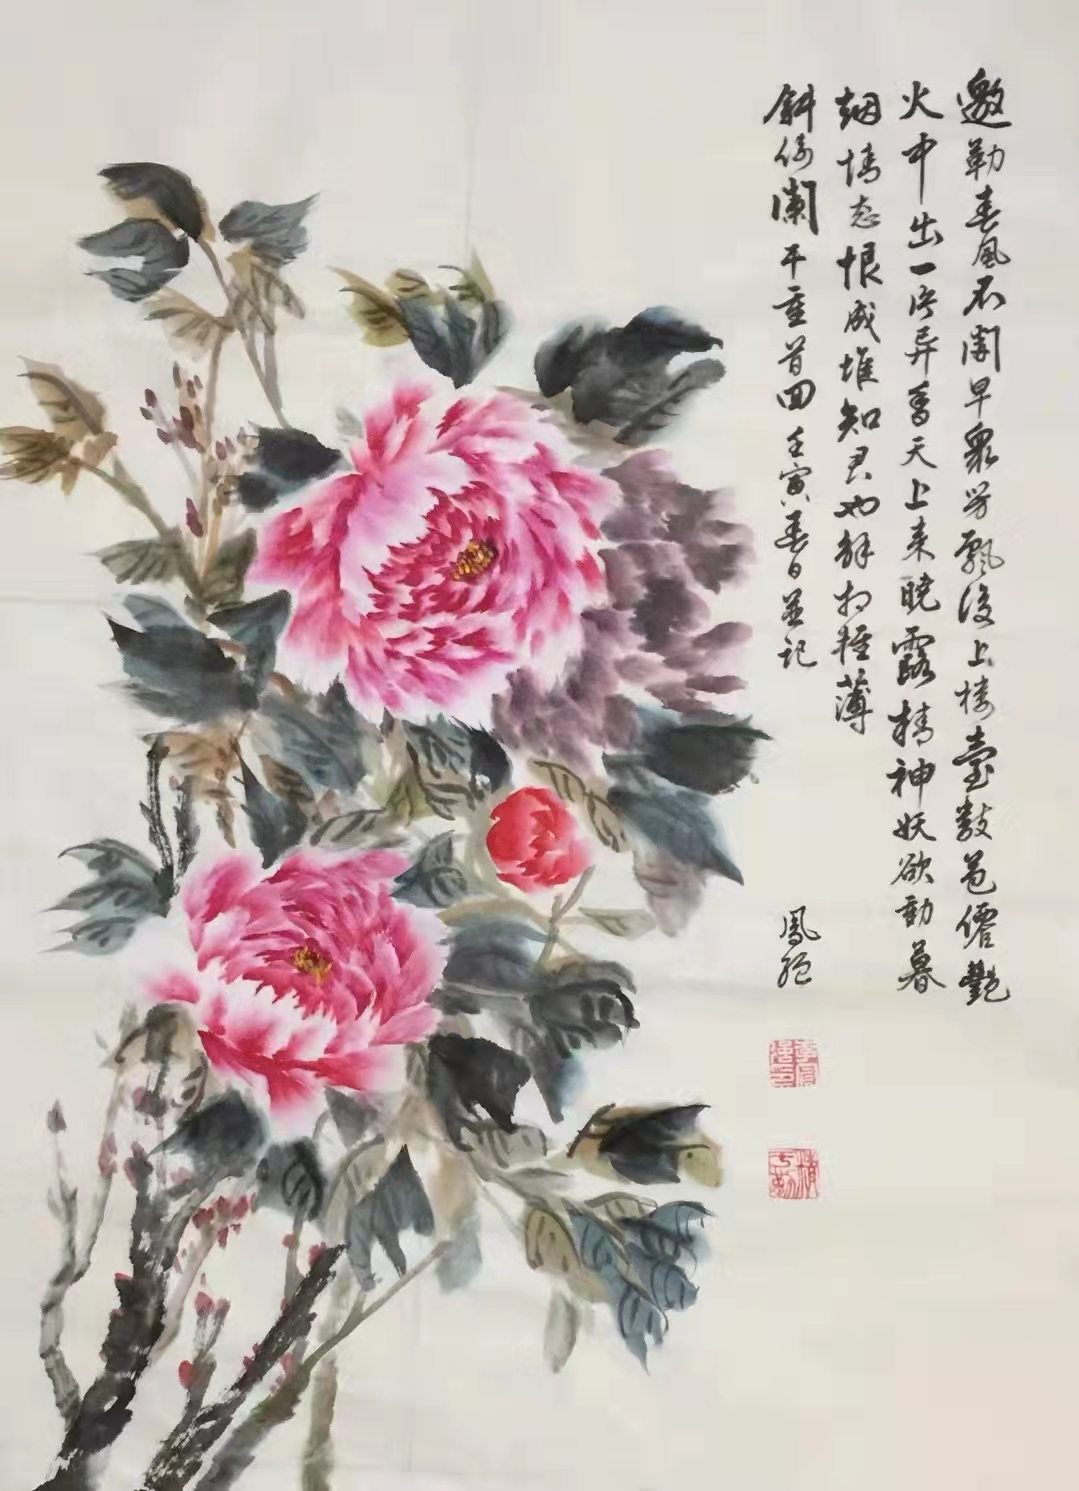 邀勒春風不開早眾芳飄後上楼臺數苞僊艷
火中出一片異香天上来曉露精神妖欲動暮
烟情态恨成堆知君也解相輕薄
斜倚闌干重首回 壬寅春日並記
鳳